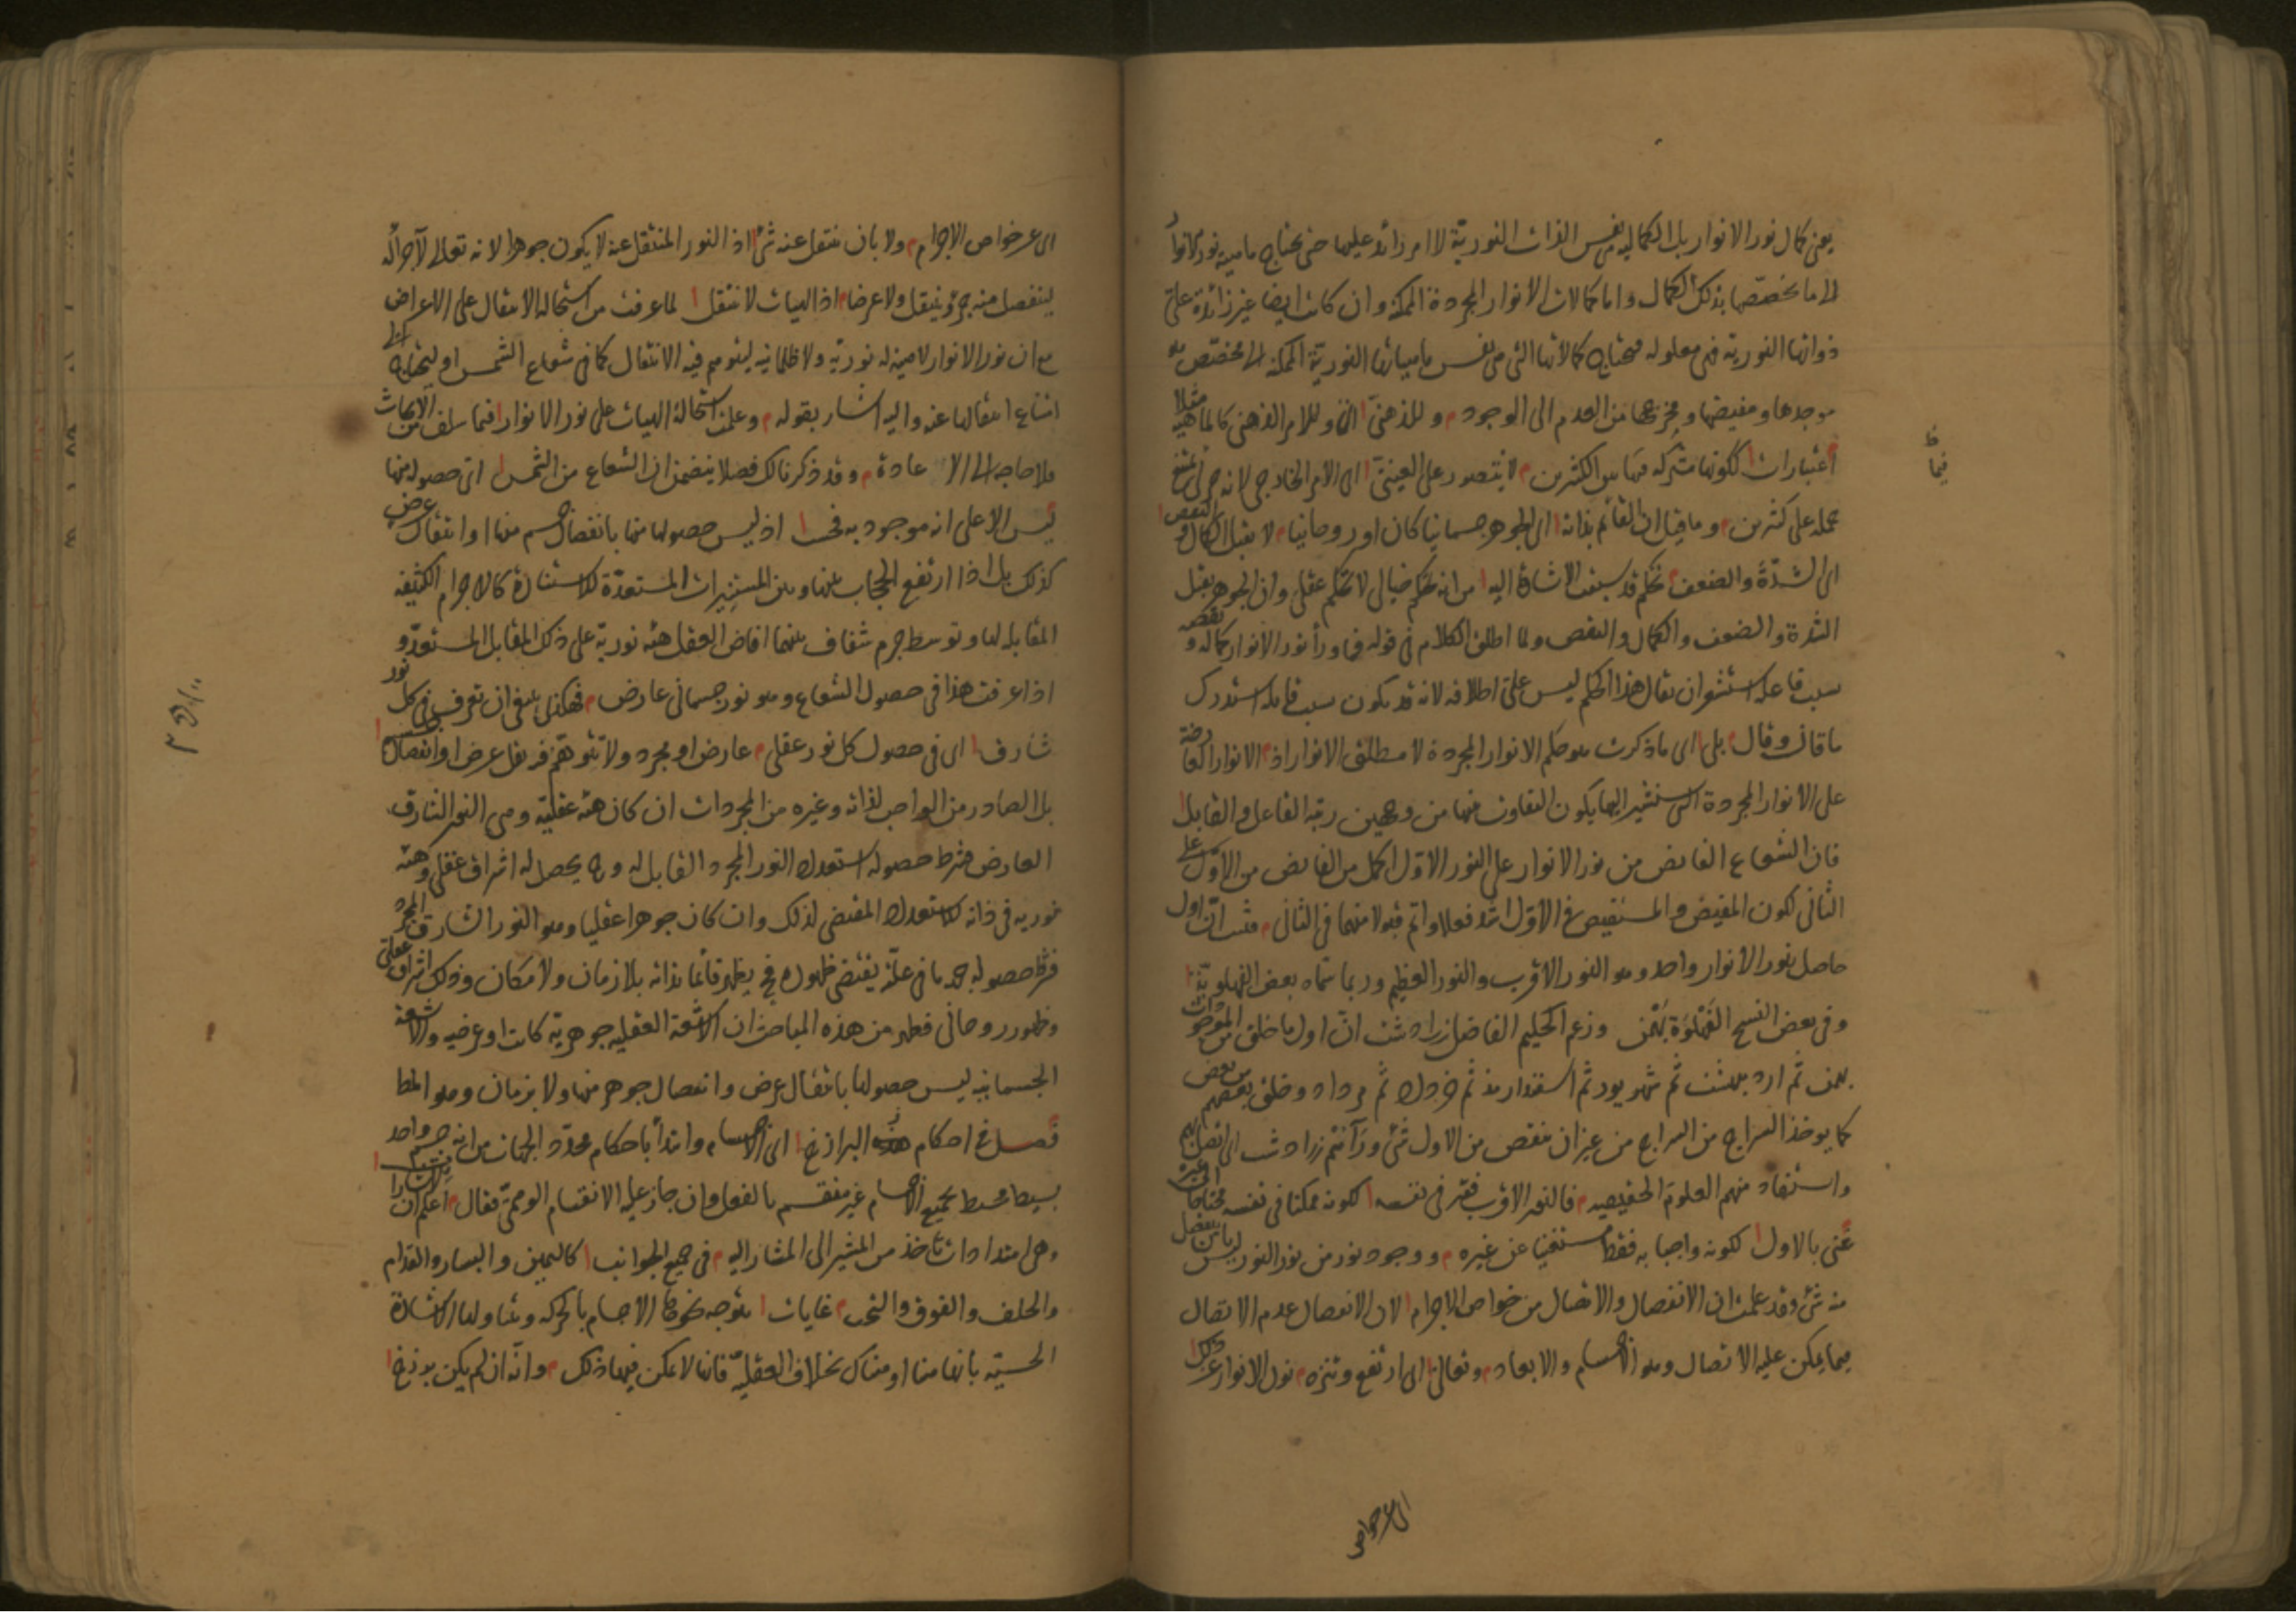 يعنى كمال نور الانوار بل الكماليه نفس الذات النورية لا امر زائد عليها حتى يحتاج ماهية نور الانوار
الى ما يخصصها بذلك الكمال واما كمالات الانوار المجردة الممكنة وان كانت ايضا غير زائدة على
ذواتها النورية فهى معلوله فيحتاج كمالاتها التى هى نفس ماهياتها النورية الممكنة الى مخصص هو
موجدها ومفيضها ومخرجها من العدم الى الوجود وللذهنى اى وللامر الذهنى كالماهية مثلا
اعتبارات لكونها مشتركه فيها بين الكثيرين لا يتصور على العينى اى الامر الخارجى لانه جزئى يمتنع
حمله على كثيرين وما قيل ان القائم بذاته اى الجوهر جسمانيا كان او روحانيا لا يقبل الكمال والنقص
اى الشدة والضعف تحكم قد سبقت الاشارة اليه من انه تحكم خيالى لا تحكم عقلى وان الجوهر يقبل
الشدة والضعف والكمال والنقص ولما اطلق الكلام فى قوله فما وراء نور الانوار كماله ونقصه
سبب فاعله استشعر ان يقال هذا الحكم ليس على اطلاقه لانه قد يكون سبب قابله استدرك
ما قال وقال بلى اى ما ذكرت هو حكم الانوار المجردة لا مطلق الانوار اذ الانوار العارضة
على الانوار المجردة التى سنشير اليها يكون التفاوت فيها من وجهين رتبة الفاعل والقابل
فان الشعاع الفايض من نور الانوار على النور الاول اكمل من الفايض من الاول على
الثانى لكون المفيض والمستفيض فى الاول اشد فعلا واتم قبولا منهما فى الثانى فثبت ان اول
حاصل بنور الانوار واحد وهو النور الاقرب والنور العظيم وربما سماه بعض الفهلوية
وفى بعض النسخ الفهلوة بهمن وزعم الحكيم الفاضل زرادشت ان اول ما خلق من الموجودات
بهمن ثم ارديبهشت ثم شهريور ثم اسفندارمذ ثم خرداد ثم مرداد وخلق بعضهم من بعض
كما يوخذ السراج من السراج من غير ان ينقص من الاول شئ ورآهم زرادشت اى اتصل بهم
واستفاد منهم العلوم الحقيقية فالنور الاقرب فقير فى نفسه لكونه ممكنا فى نفسه محتاجا الى غيره
غنى بالاول لكونه واجبا به فقط مستغنيا عن غيره ووجود نور من نور النور ليس بان ينفصل
منه شئ وقد علمت ان الانفصال والاتصال من خواص الاجرام لان الانفصال عدم الاتصال
فيما يمكن عليه الاتصال وهو الاجسام والابعاد وتعالى اى ارتفع وتنزه نور الانوار عن ذلك
اى عن خواص
فيما
اى عن خواص الاجرام ولا بان ينتقل عنه شئ اذ النور المنتقل عنه لا يكون جوهرا لانه تعالى لا جزء له
لينفصل منه جزء وينتقل ولا عرضا اذ الهيات لا تنتقل لما عرفت من استحالة الانتقال على الاعراض
مع ان نور الانوار لا هيئة له نورية ولا ظلمانية ليتوهم فيه الانتقال كما فى شعاع الشمس او ليحتاج الى
امتناع انتقالها عنه واليه اشار بقوله وعلمت استحالة الهيات على نور الانوار فيما سلف من الابحاث
فلا حاجة الى الاعادة وقد ذكرنا لك فصلا يتضمن ان الشعاع من الشمس اى حصوله منها
ليس الا على انه موجود به فحسب اذ ليس حصولها منها بانفصال جسم منها او انتقال عرض
كذلك بل اذا ارتفع الحجاب بينها وبين المستنيرات المستعدة للاستنارة كالاجرام الكثيفة
المقابله لها وتوسط جرم شفاف بينهما افاض العقل هيئة نورية على ذلك المقابل المستعد و
اذا عرفت هذا فى حصول الشعاع وهو نور جسمانى عارض فهكذا ينبغى ان تعرف فى كل نور
شارق اى فى حصول كل نور عقلى عارض او مجرد ولا تتوهم فيه نقل عرض او انفصال جسم
بل الصادر من الواجب لذاته وغيره من المجردات ان كان هيئة عقلية وهى النور الشارق
العارض فشرط حصوله استعداد النور المجرد القابل له وبه يحصل له اشراق عقلى وهيئة
نورية فى ذاته لاستعداده المقتضى لذلك وان كان جوهرا عقليا وهو النور الشارق المجرد
فشرط حصوله جهة ما فى علته يقتضى ظهوره فيظهر قائما بذاته بلا زمان ولا مكان وذلك اشراق عقلى
وظهور روحانى فظهر من هذه المباحث ان الاشعة العقلية جوهرية كانت او عرضيه والاشعة
الجسمانية ليس حصولها بانتقال عرض وانفصال جوهر منها ولا بزمان وهو المط
فصل فى احكام البرازخ اى الاجسام وابتدأ باحكام محدد الجهات من انه جسم واحد
بسيط محيط بجميع الاجسام غير منقسم بالفعل وان جاز عليه الانقسام الوهمى فقال اعلم ان للاشارات
وهى امتدادات تاخذ من المشير الى المشار اليه فى جميع الجوانب كاليمين واليسار والقدام
والخلف والفوق والتحت غايات يتوجه نحوها الاجسام بالحركه ويتناولها الاشارة
الحسية بانها هنا او هناك بخلاف العقلية فانها لا يمكن فيها ذلك وانه ان لم يكن برزخ